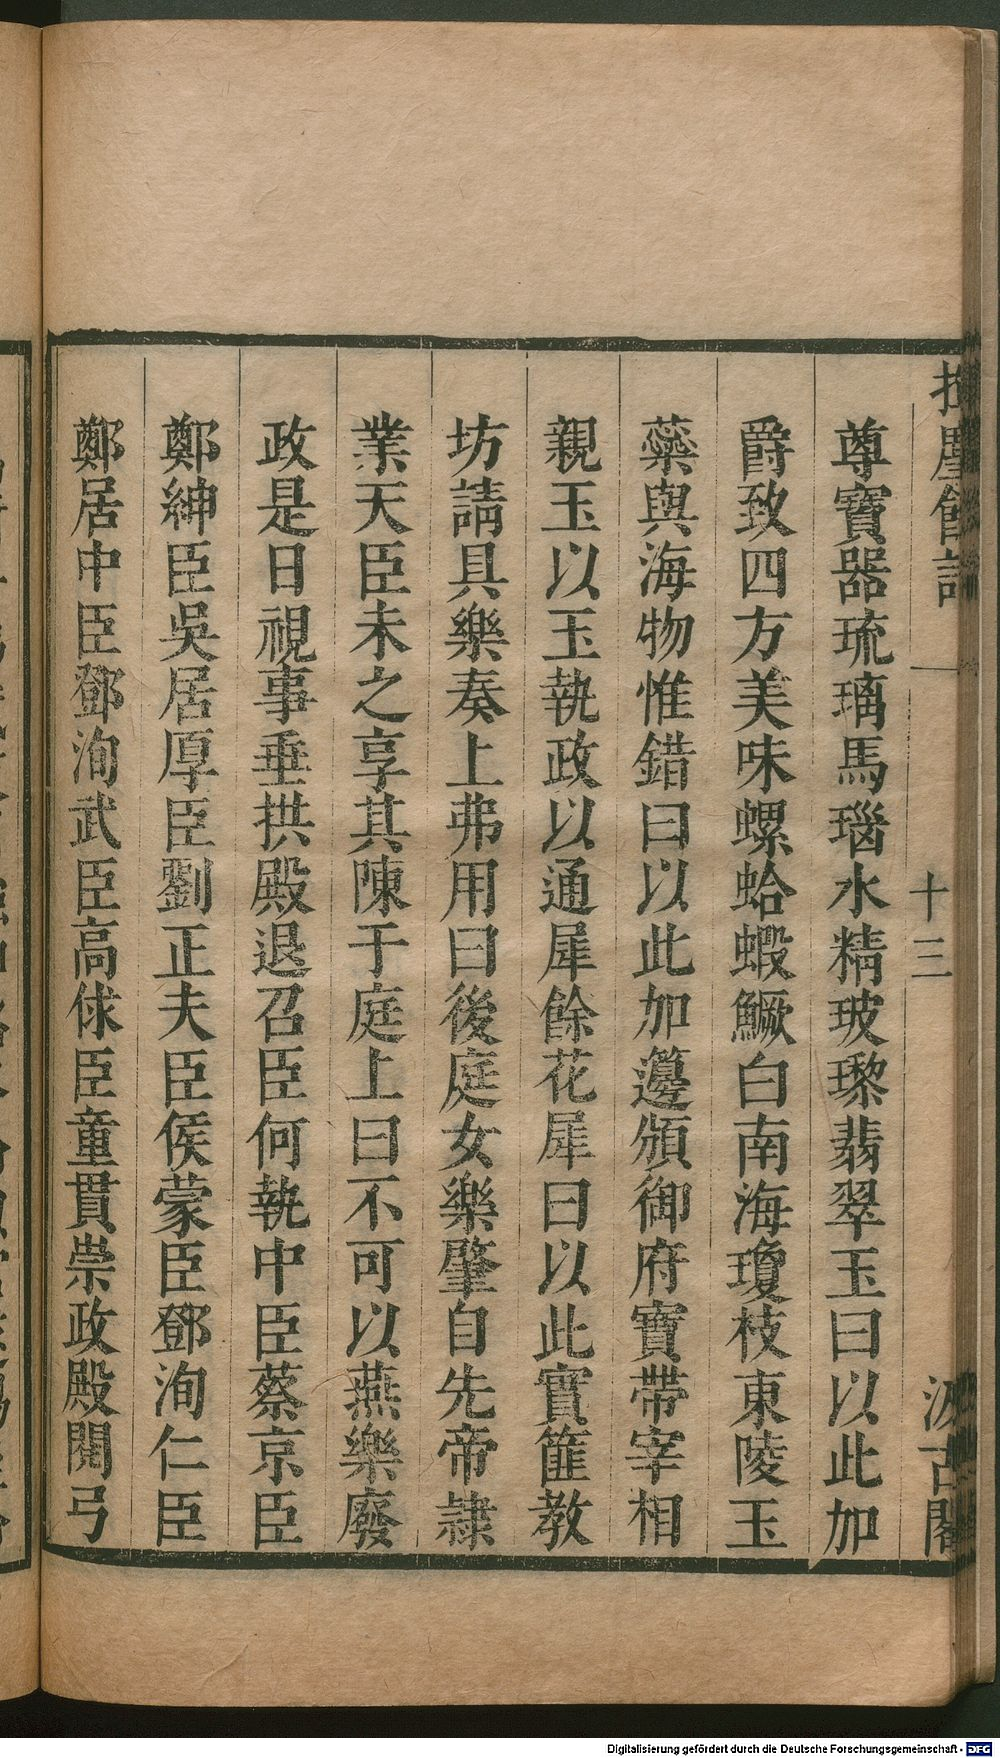 揮麈餘話 一 十三 汲古閣
尊寶器琉璃馬瑙水精玻瓈翡翠玉曰以此加
爵致四方美味螺蛤蝦鱖白南海瓊枝東陵玉
蘂與海物惟錯曰以此加籩頒御府寶帶宰相
親玉以玉執政以通犀餘花犀曰以此實篚教
坊請具樂奏上弗用曰後庭女樂肇自先帝隷
業天臣未之享其陳于庭上曰不可以燕樂廢
政是日視事垂拱殿退召臣何執中臣蔡京臣
鄭紳臣吳居厚臣劉正夫臣侯蒙臣鄧洵仁臣
鄭居中臣鄧洵武臣高俅臣童貫崇政殿閱弓
Digitalisierung gefördert durch die Deutsche Forschungsgemeinschaft - DFG